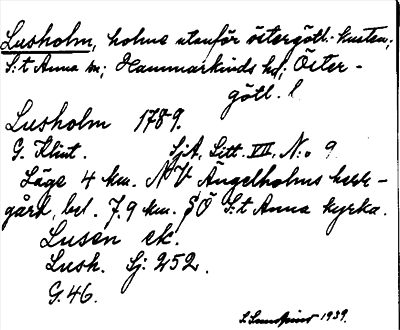 Lusholm, holme utanför östergötl. kusten;
S:t Anna sn; Hammarkinds hd; Öster-
götl. l.
Lusholm 1789.
G. Klint. SjA, Litt. VII, N:o 9
Läge 4 km. NV Ängelholms herr-
gård, bel. 7.9 km. SÖ S:t Anna kyrka.
Lusen ek.
Lush. Sj: 252.
G.46.
1939.